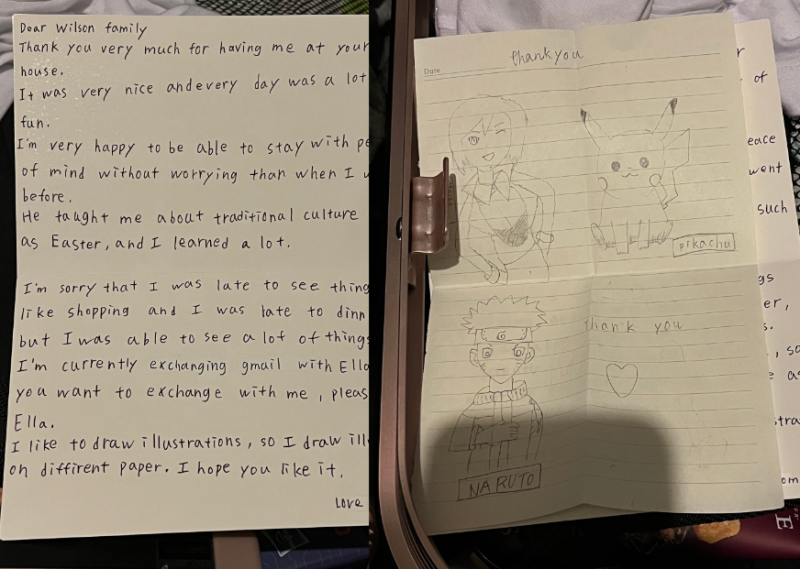 Dear Wilson family
Thank you very much for having me at your
house.
It was very nice andevery day was a lot
fun.
I'm very happy to be able to stay with
of mind without worrying than when I
before.
He taught me about traditional culture
as Easter, and I learned a lot.
I'm sorry that I was late to see thing
like shopping and I was late to dinn
but I was able to see a lot of things
I'm currently exchanging gmail with Ella
you want to exchange with me, pleas
Ella.
I like to draw illustrations, so I draw ill
on diffirent paper. I hope you like it.
Love
Date
thank you
pikachu
thank you
NARUTO
r
of
eace
went
such
gs
er,
s.
, so
e as
stra
om
E